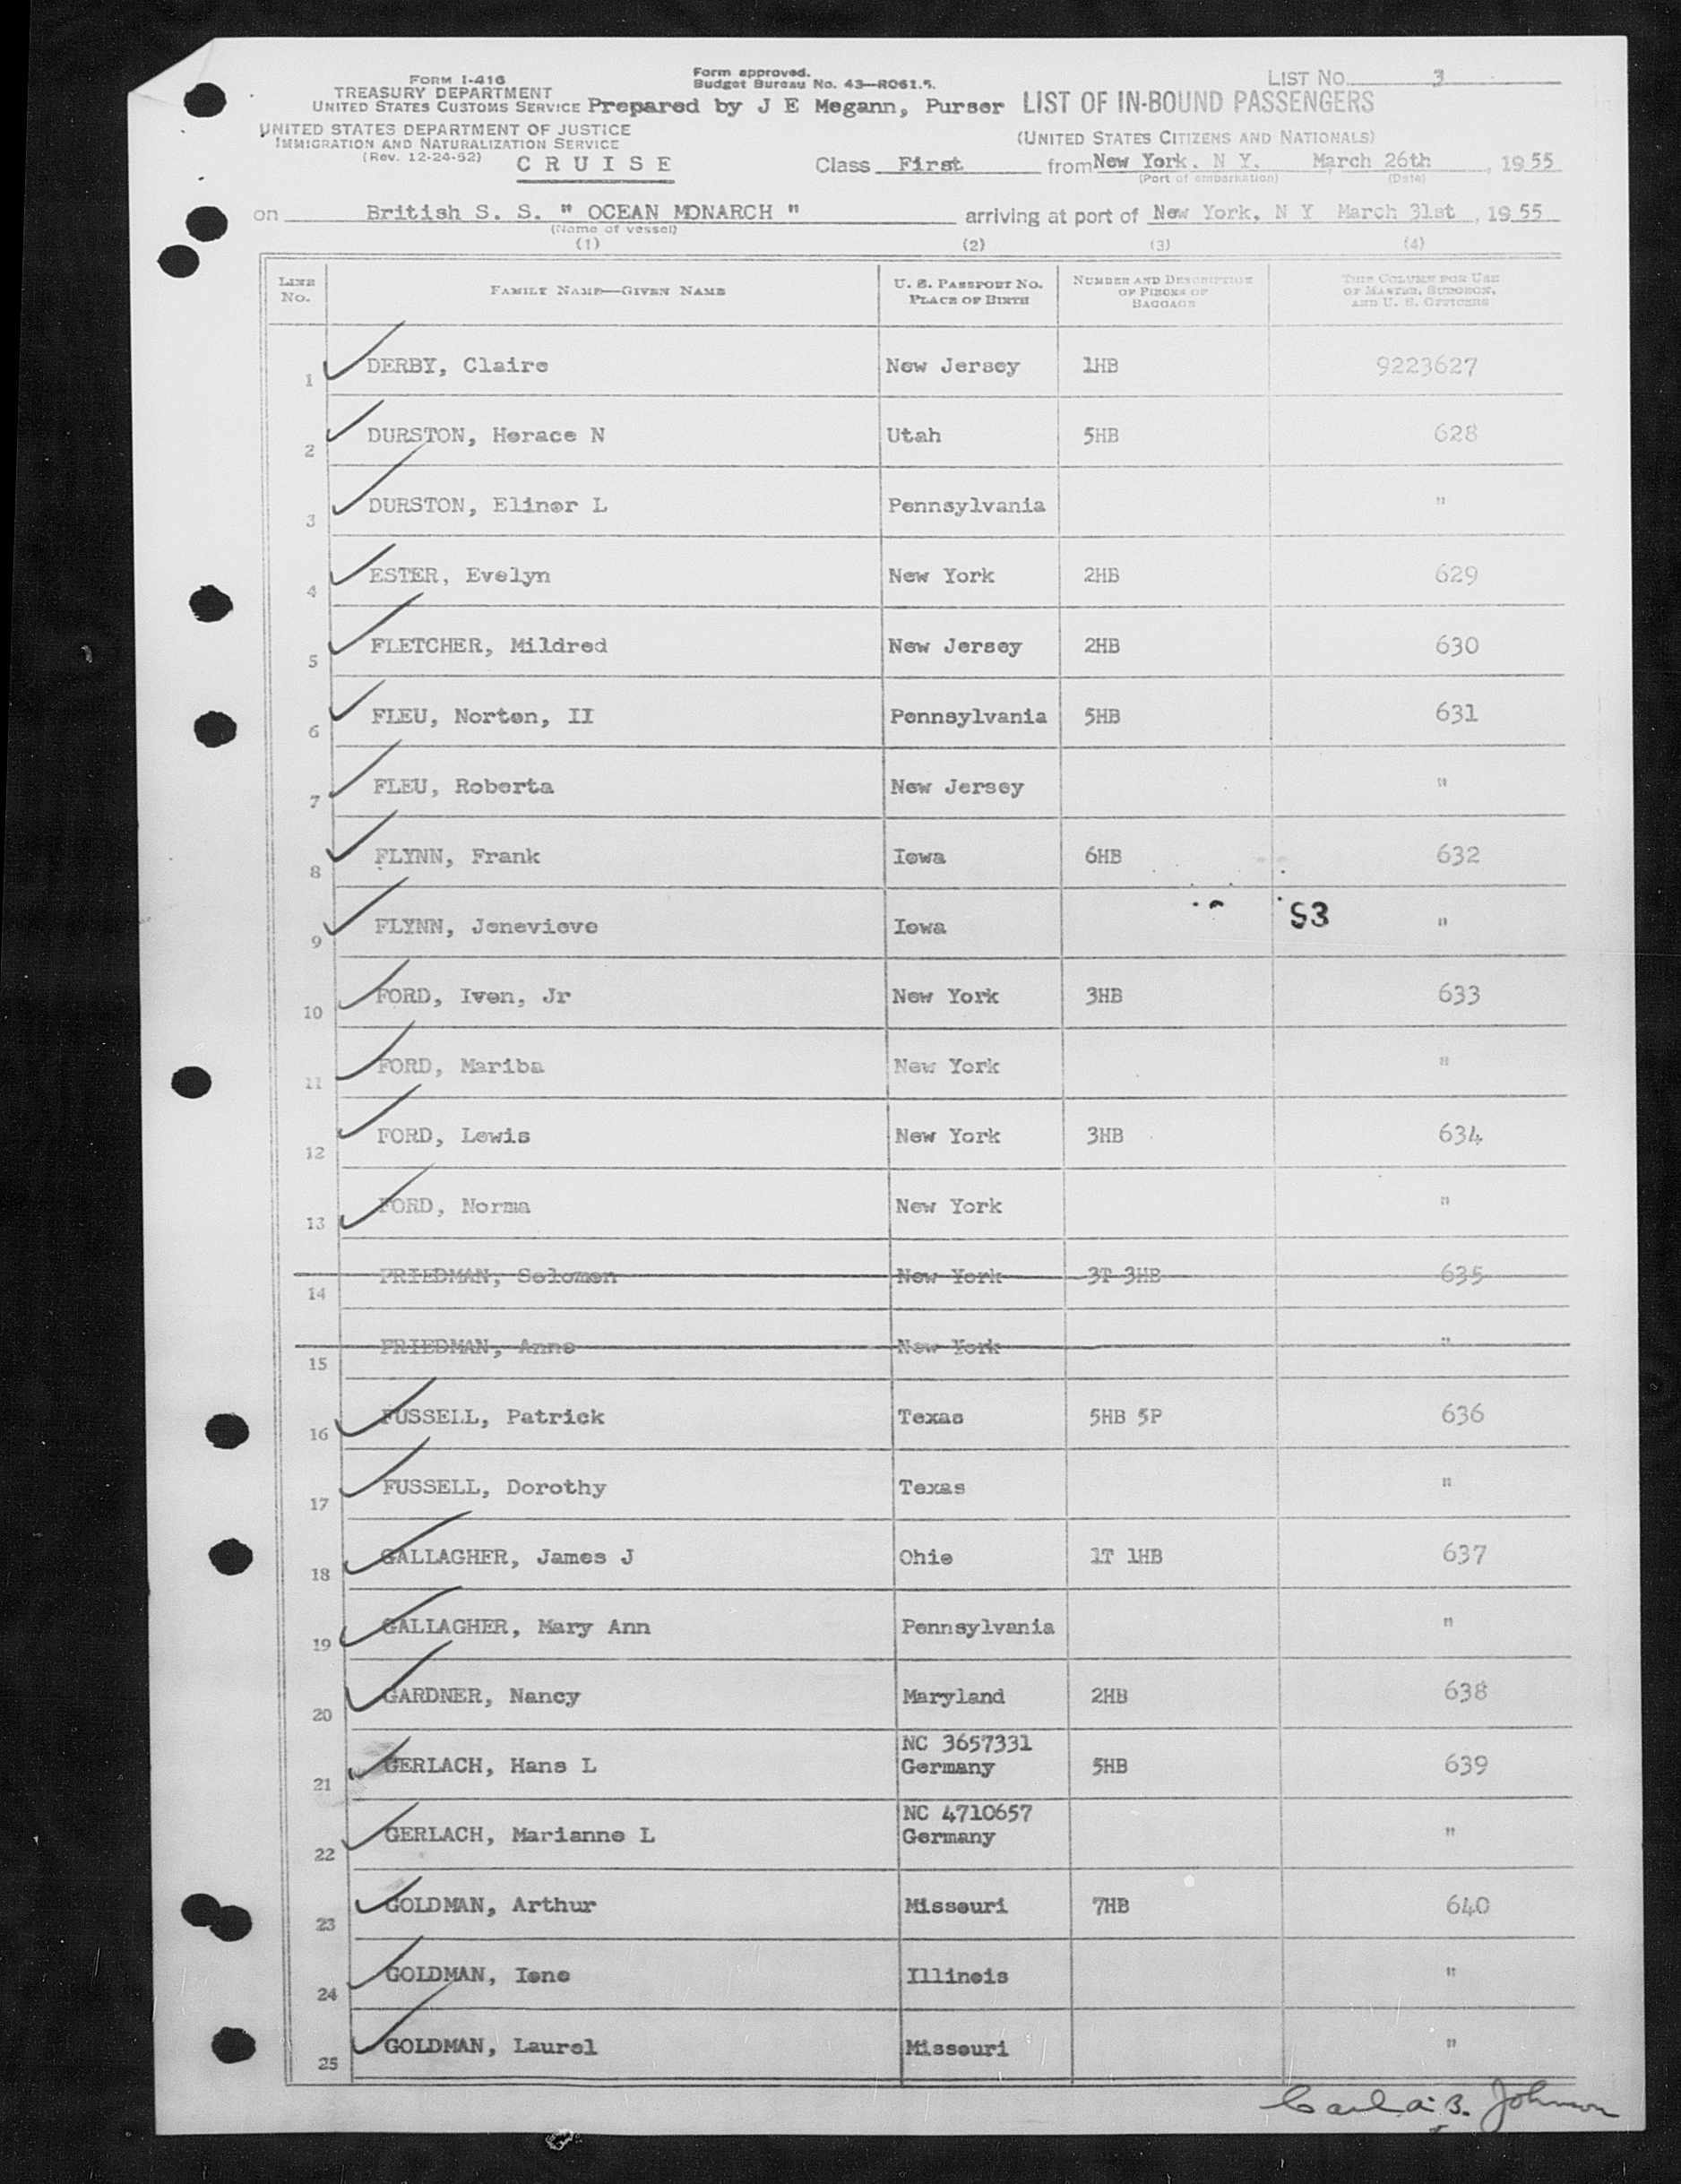 FORM I-416
TREASURY DEPARTMENT
UNITED STATES CUSTOMS SERVICE
UNITED STATES DEPARTMENT OF JUSTICE
IMMIGRATION AND NATURALIZATION SERVICE
(Rev. 12-24-52)
Form approved.
Budget Bureau No. 43—R061.5.
Prepared by J E Megann, Purser
LIST NO. 3
LIST OF IN-BOUND PASSENGERS
(UNITED STATES CITIZENS AND NATIONALS)
C R U I S E
Class First from New York. N Y. March 26th, 19 55
(Port of embarkation) (Date)
on British S. S. " OCEAN MONARCH " arriving at port of New York, N Y March 31st, 19 55
(Name of vessel)
(1) (2) (3) (4)
LINE No. FAMILY NAME—GIVEN NAME U. S. PASSPORT NO. PLACE OF BIRTH NUMBER AND DESCRIPTION OF PIECES OF BAGGAGE THIS COLUMN FOR USE OF MASTER, SURGEON, AND U. S. OFFICERS
1 DERBY, Claire New Jersey 1HB 9223627
2 DURSTON, Horace N Utah 5HB 628
3 DURSTON, Elinor L Pennsylvania "
4 ESTER, Evelyn New York 2HB 629
5 FLETCHER, Mildred New Jersey 2HB 630
6 FLEU, Norton, II Pennsylvania 5HB 631
7 FLEU, Roberta New Jersey "
8 FLYNN, Frank Iowa 6HB 632
9 FLYNN, Jenevieve Iowa S3 "
10 FORD, Iven, Jr New York 3HB 633
11 FORD, Mariba New York "
12 FORD, Lewis New York 3HB 634
13 FORD, Norma New York "
14 FRIEDMAN, Solomon New York 3T 3HB 635
15 FRIEDMAN, Anne New York "
16 FUSSELL, Patrick Texas 5HB 5P 636
17 FUSSELL, Dorothy Texas "
18 GALLAGHER, James J Ohio 1T 1HB 637
19 GALLAGHER, Mary Ann Pennsylvania "
20 GARDNER, Nancy Maryland 2HB 638
21 GERLACH, Hans L NC 3657331 Germany 5HB 639
22 GERLACH, Marianne L NC 4710657 Germany "
23 GOLDMAN, Arthur Missouri 7HB 640
24 GOLDMAN, Ione Illinois "
25 GOLDMAN, Laurel Missouri "
B. Johnson